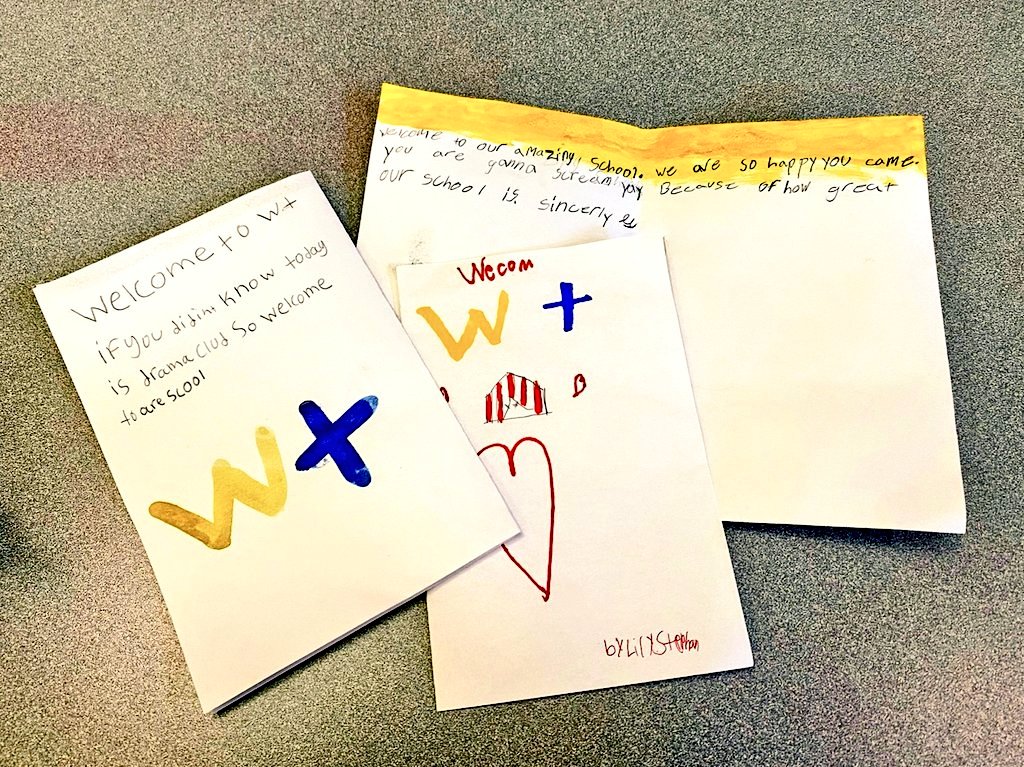 welcome to w+
if you didint know today
is drama clud so welcome
to are scool
W+
welcome to our amazing! school. we are so happy you came.
you are gonna scream! yay Because of how great
our school is. sincerly
Wecom
W +
B
by Lily Stephan